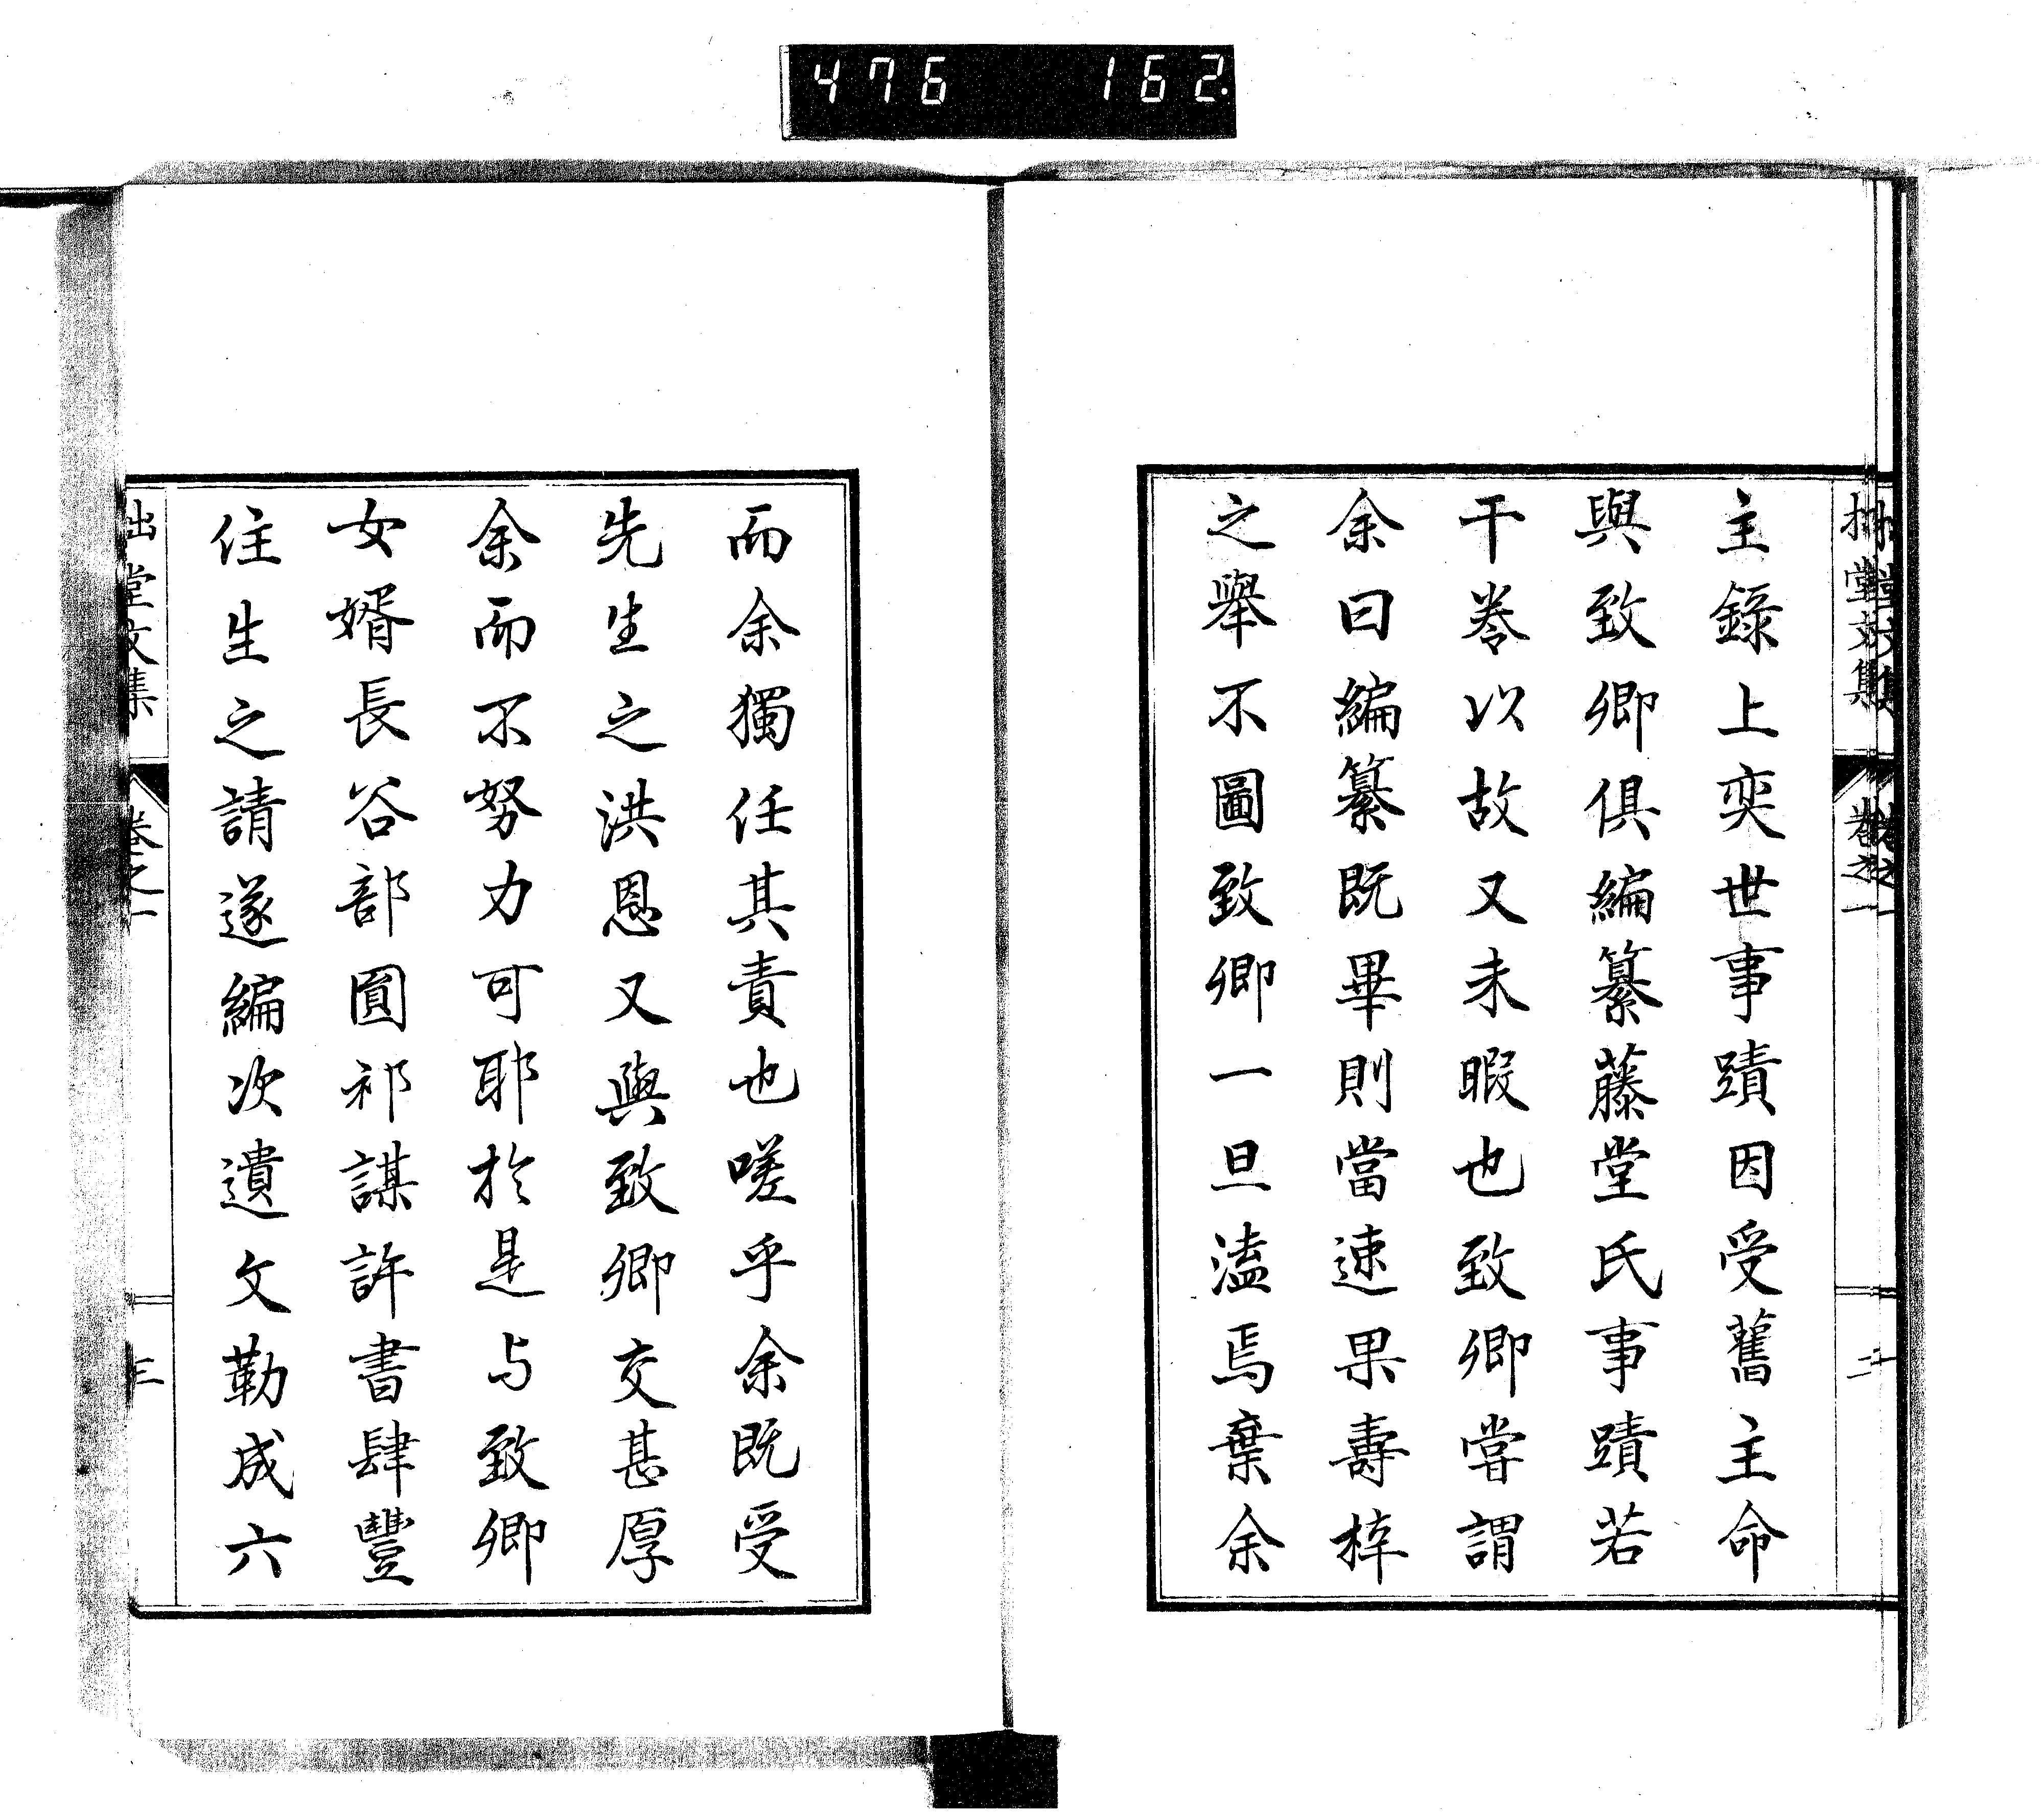 476 162
拙堂文集 卷之一 二
主錄上奕世事蹟因受舊主命
與致卿俱編纂藤堂氏事蹟若
干卷以故又未暇也致卿嘗謂
余曰編纂既畢則當速果壽梓
之舉不圖致卿一旦溘焉棄余
而余獨任其責也嗟乎余既受
先生之洪恩又與致卿交甚厚
余而不努力可耶於是与致卿
女婿長谷部圓祁謀許書肆豐
住生之請遂編次遺文勒成六
拙堂文集 卷之一 三